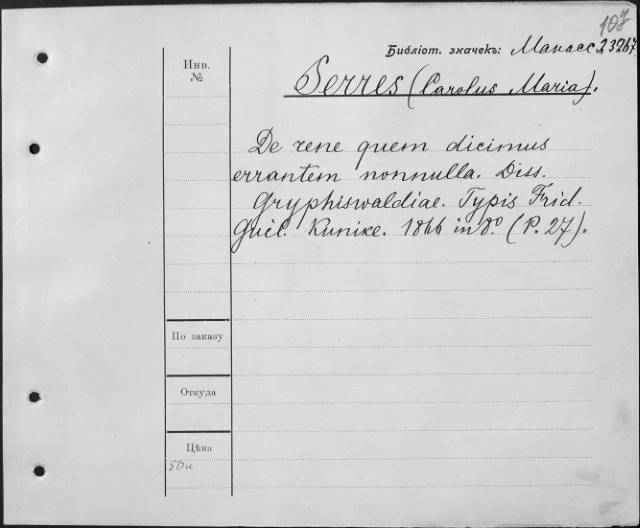 107
Библіот. значекъ: Манасс. 23267.
Инв. №
Serres (Carolus Maria).
De rene quem dicimus
errantem nonnulla. Diss.
Gryphiswaldiae. Typis Frid.
Guil. Kunike. 1866 in 8.º (P. 27).
По заказу
Откуда
Цѣна
50к